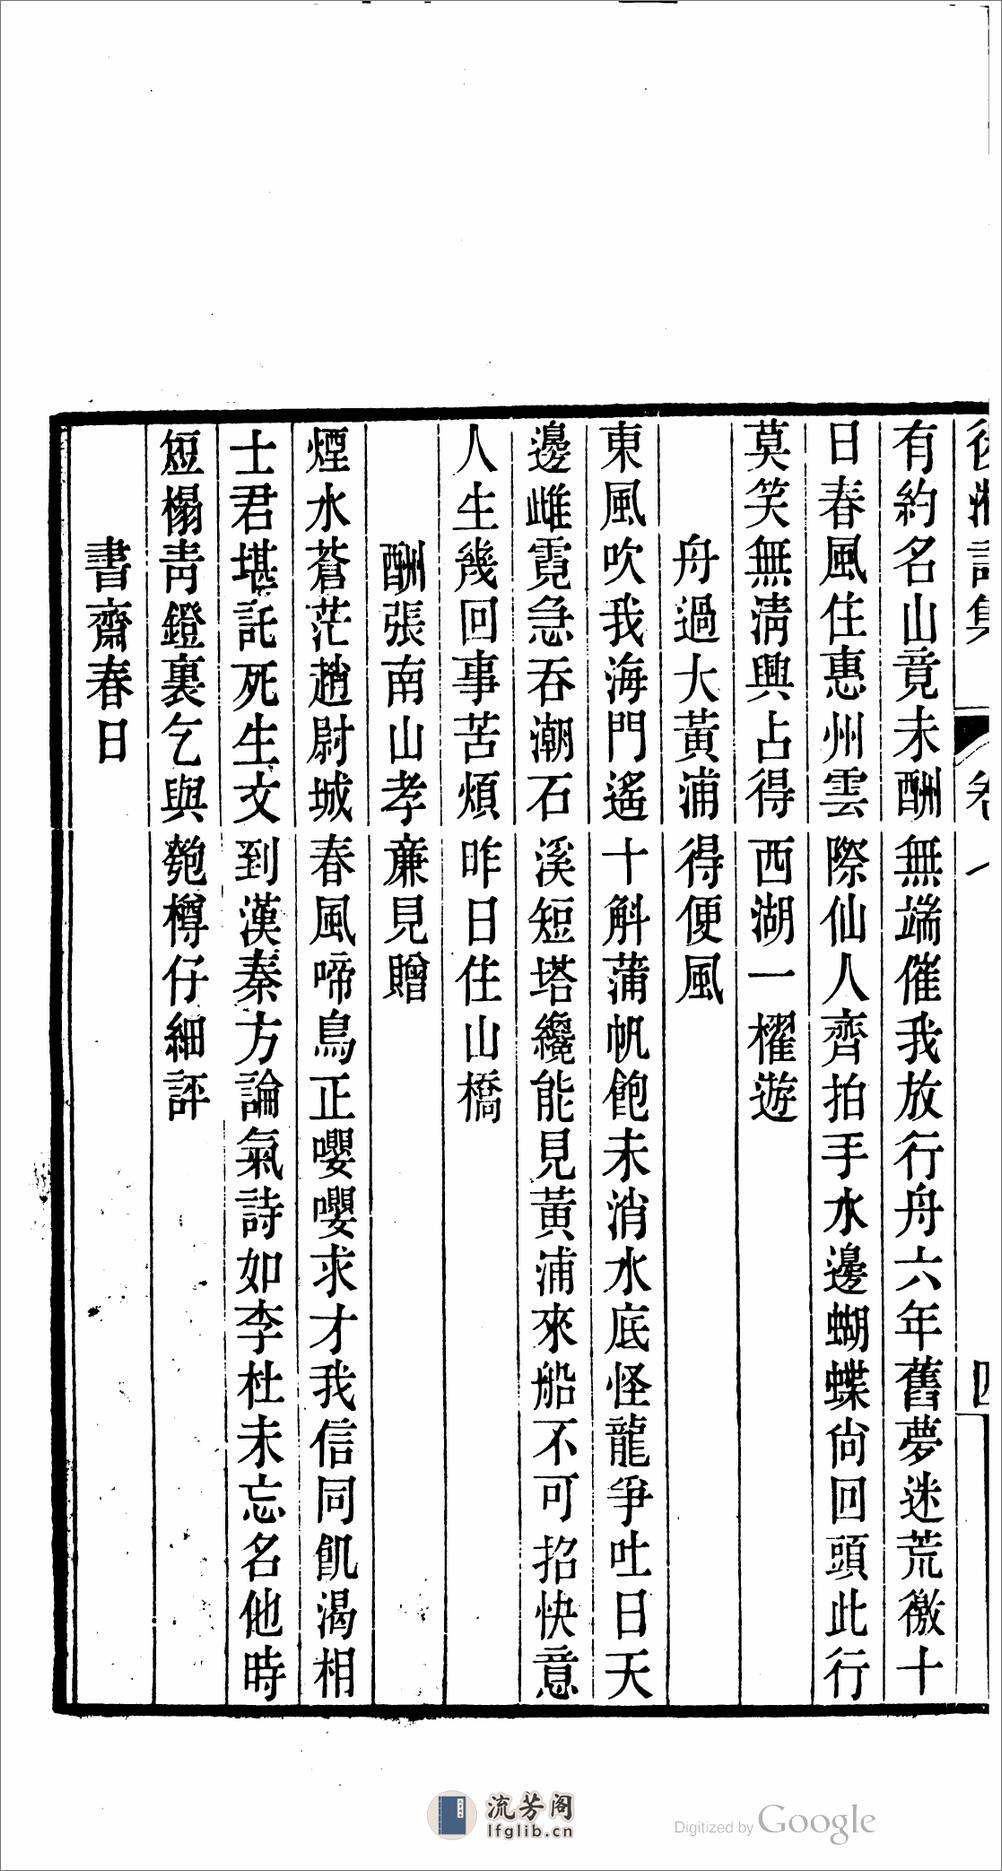 詩集 卷八 四
有約名山竟未酬無端催我放行舟六年舊夢迷荒徼十
日春風住惠州雲際仙人齊拍手水邊蝴蝶尙回頭此行
莫笑無淸興占得西湖一櫂遊
舟過大黃浦得便風
東風吹我海門遙十斛蒲帆飽未消水底怪龍爭吐日天
邊雌霓急吞潮石溪短塔纔能見黃浦來船不可招快意
人生幾回事苦煩昨日住山橋
酬張南山孝亷見贈
煙水蒼茫趙尉城春風啼鳥正嚶嚶求才我信同飢渴相
士君堪託死生文到漢秦方論氣詩如李杜未忘名他時
短榻靑鐙裏乞與匏樽仔細評
書齋春日
流芳阁
lfglib.cn
Digitized by Google